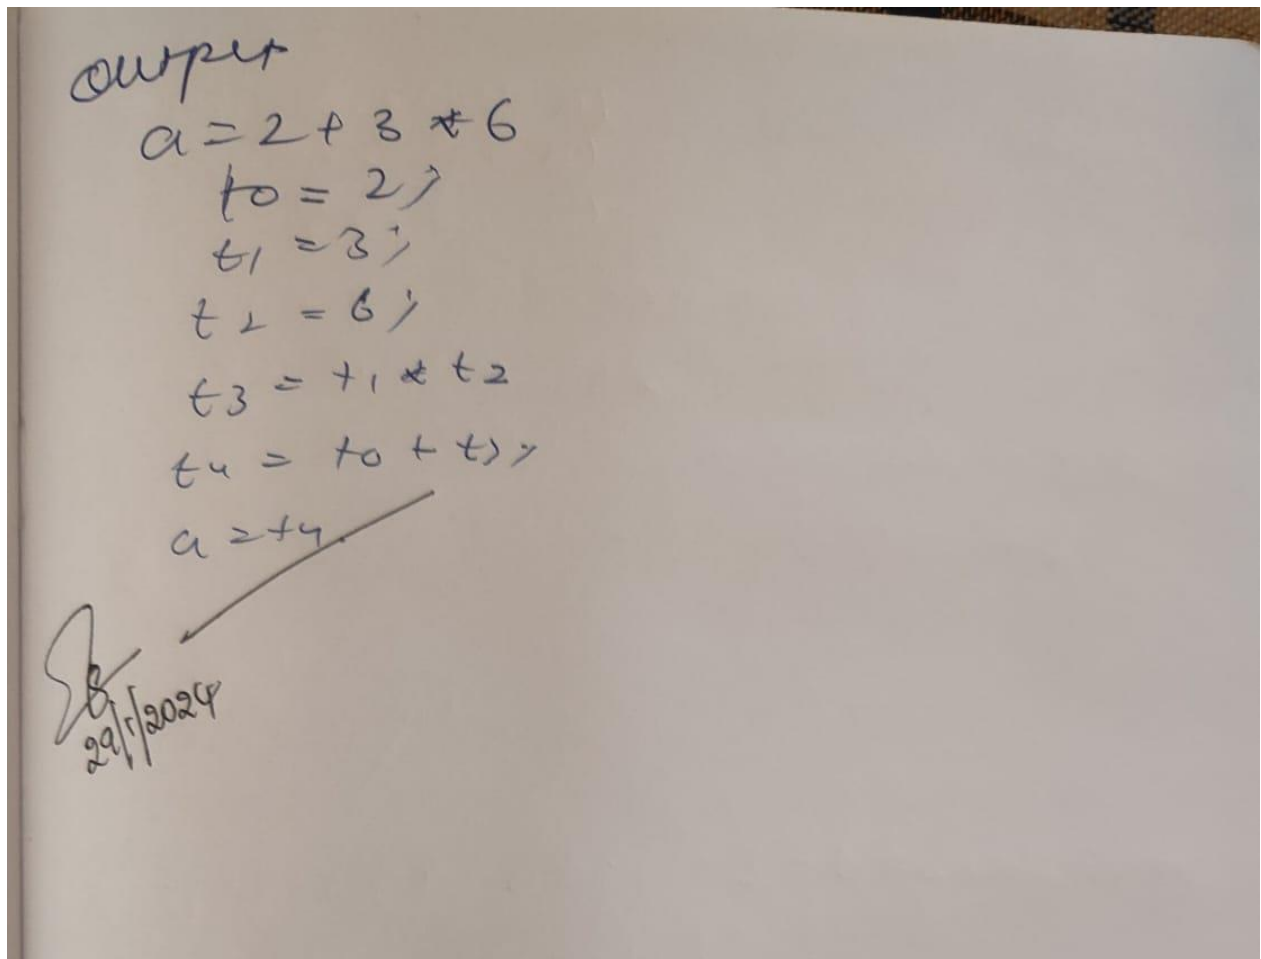 output
a = 2 + 3 * 6
t0 = 2;
t1 = 3;
t2 = 6;
t3 = t1 * t2
t4 = t0 + t3;
a = t4.
29/1/2024